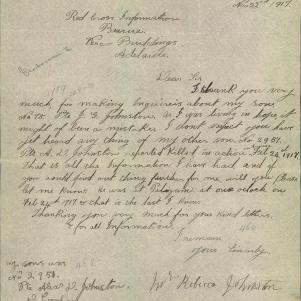 Nov 23rd 1917.
Red Cross Information
Bureau
Verco Buildings
Adelaide.
Dear Sir
I thank you very
much for making Enquiries about my son
No Pte J. G. Johnston. As I was lively in hope, it
might of been a mistake, I don't expect you have
yet heard any thing of my other son. No 2981.
Pte A. D. Johnston reported killed in action Feb 24th 1917.
That is all the Information I have had and if
you could find out thing further for me will you
let me know. He was at at one oclock on
Feb 24th 1917 & that is the last I know.
Thanking you very much for your kind letters,
& for all Information.
I remain
yours Sincerely
Mrs Rebecca Johnston
my sons was
No 2981
Pte D. Johnston